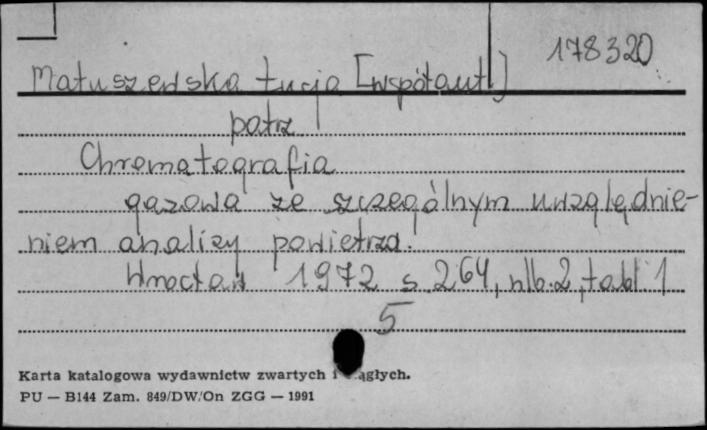 178320
Matuszewska Łucja [współaut.]
patrz
Chromatografia
gazowa ze szczególnym uwzględnie-
niem analizy powietrza.
Wrocław 1972 s. 264, nlb. 2, tabl. 1
5
Karta katalogowa wydawnictw zwartych i ągłych.
PU — B144 Zam. 849/DW/On ZGG — 1991